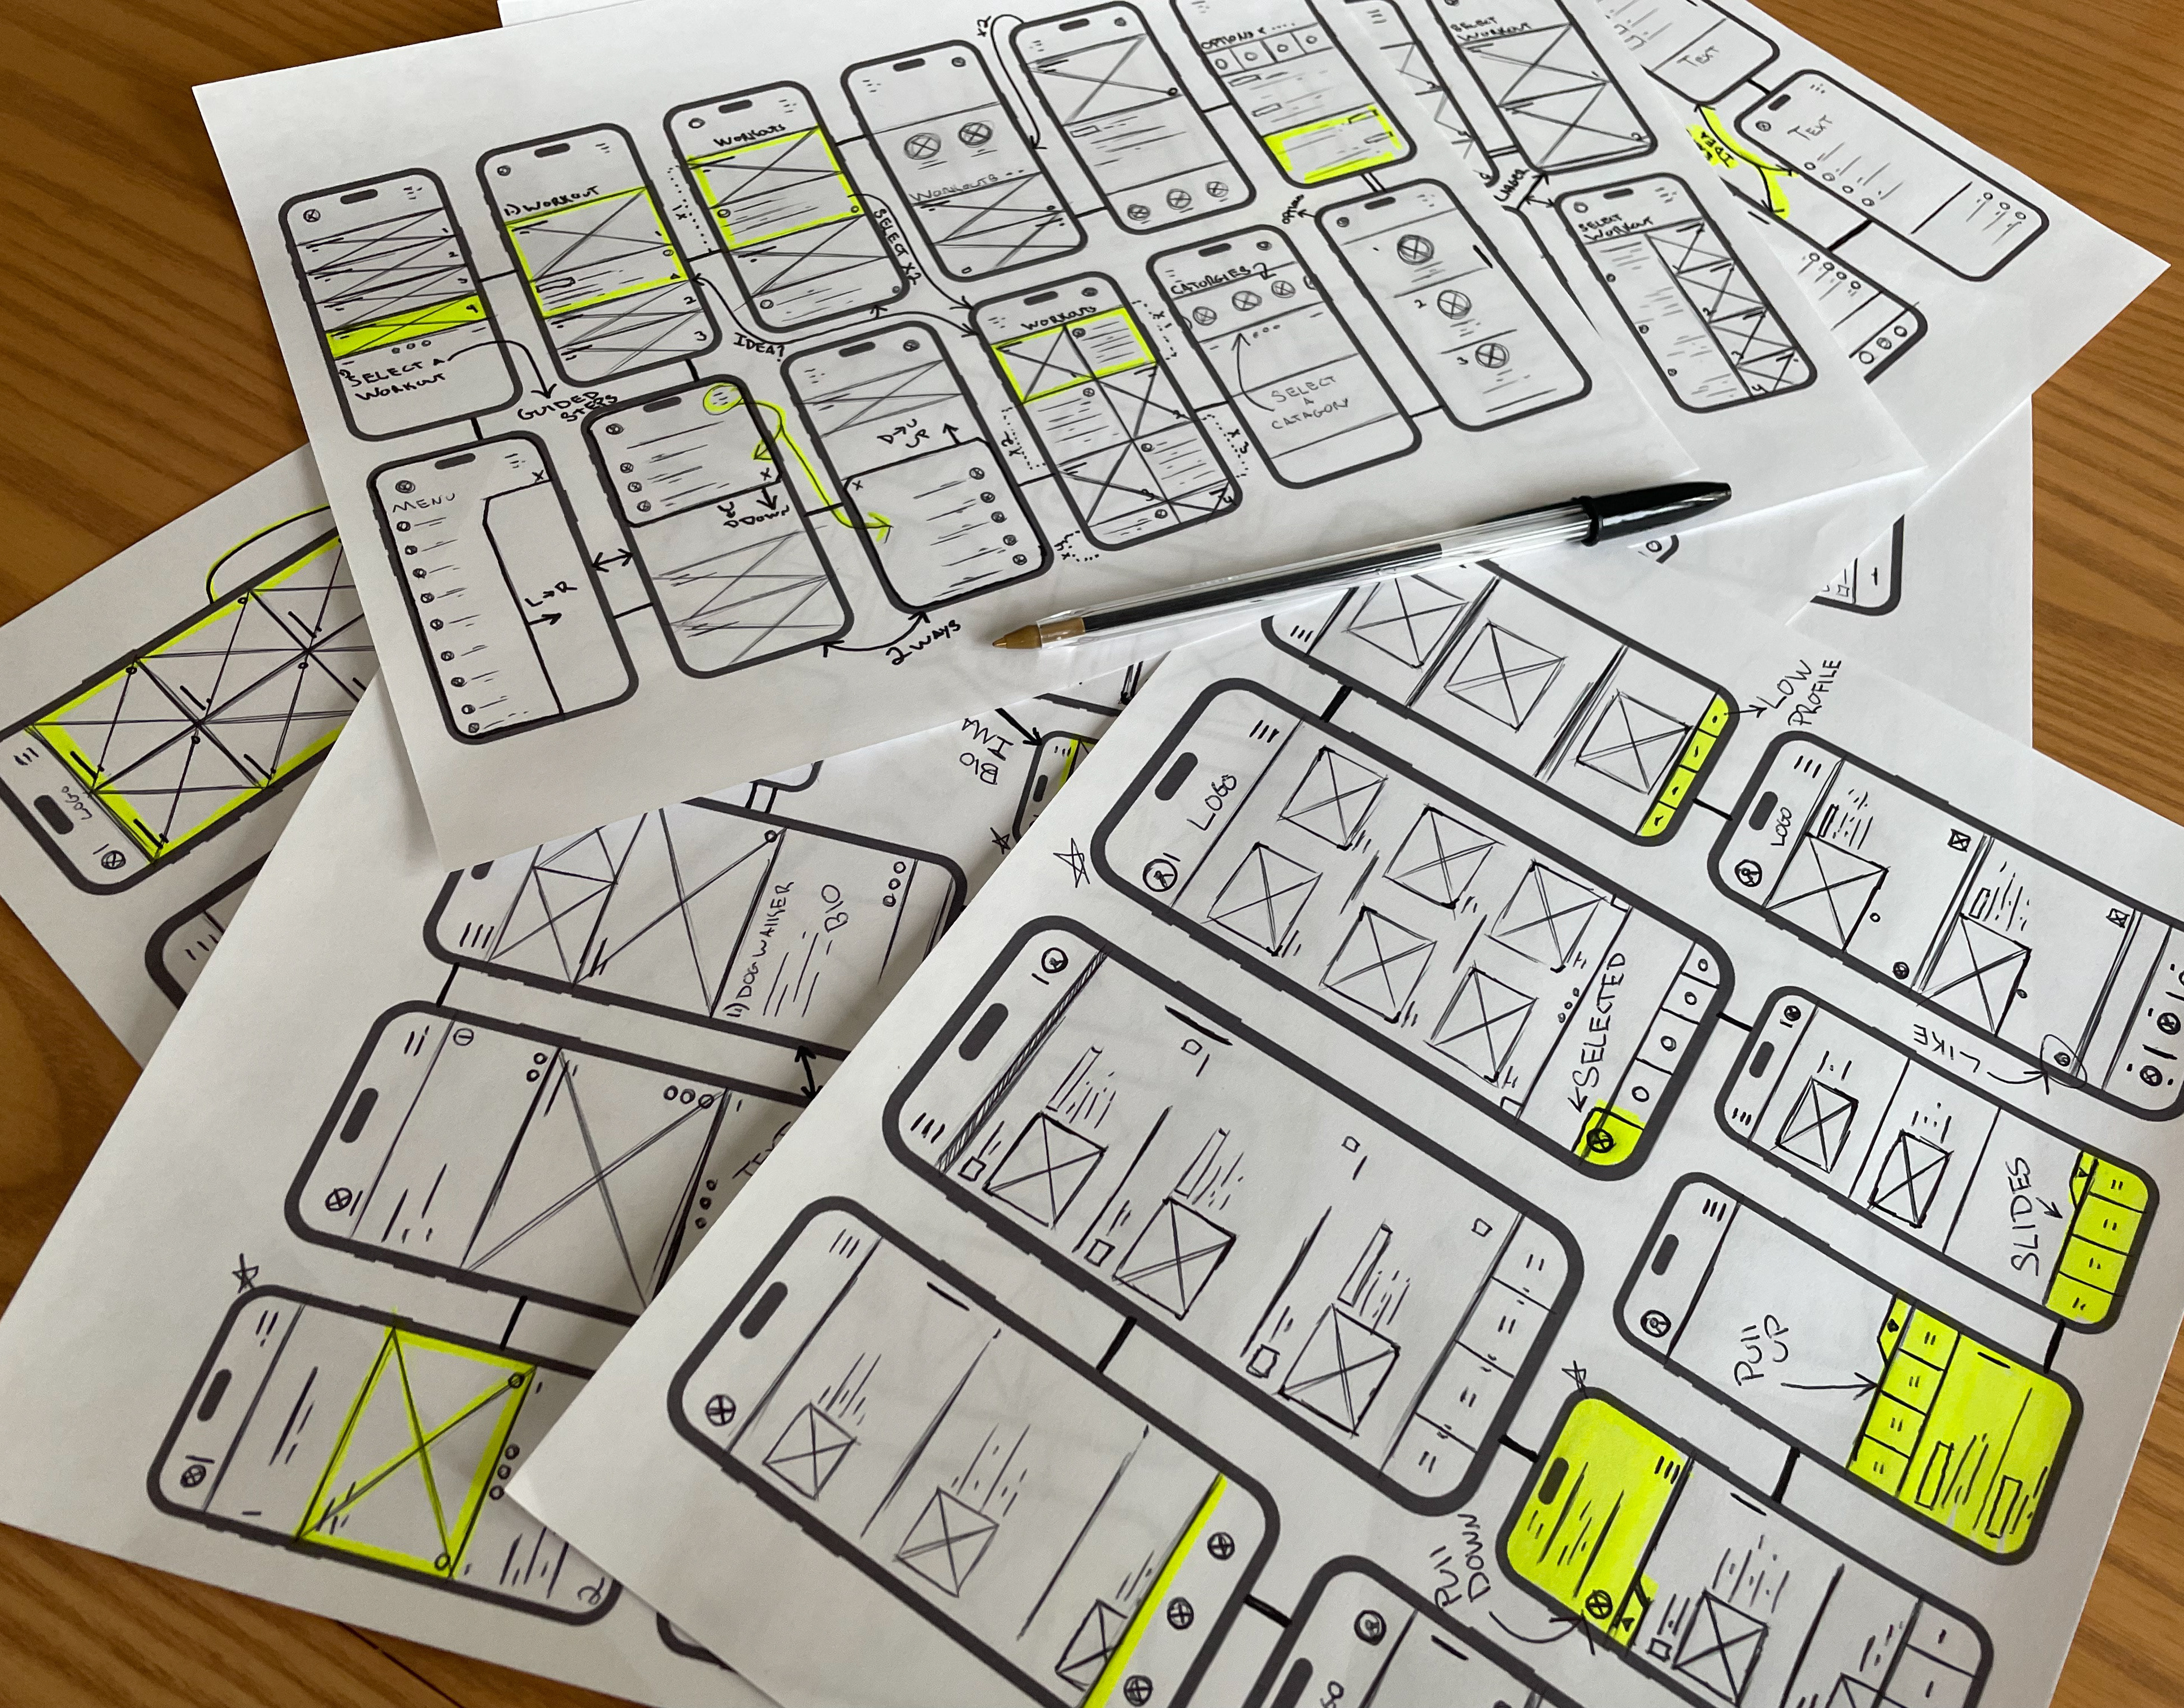 SELECT A
WORKOUT
GUIDED
STEPS
1) WORKOUT
1
2
3
WORKOUTS
SELECT X2
IDEA?
WORKOUTS
X2
OPTIONS
SELECT
WORKOUT
TEXT
TEXT
LABEL
SELECT
WORKOUT
MENU
L→R
D DOWN
D→U
UP
2 WAYS
WORKOUTS
CATORGIES
SELECT
A
CATAGORY
2
3
LOGO
BIO
1) DOGWALKER
BIO
2
LOW
PROFILE
LOGO
SELECTED
LOGO
LIKE
SLIDES
PULL
UP
PULL
DOWN